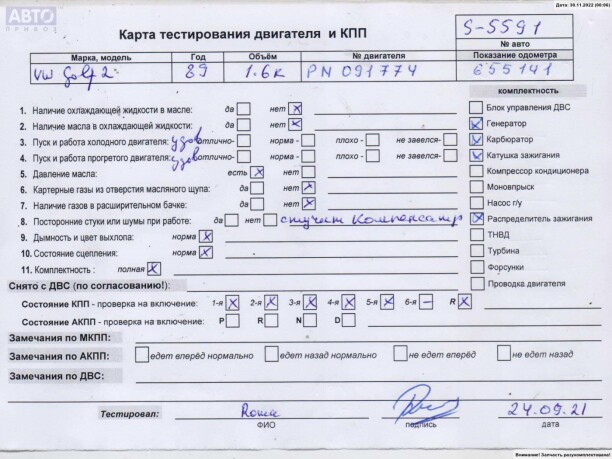 Дата: 30.11.2022 (00:06)
АВТО
ПРИВОЗ
Карта тестирования двигателя и КПП
S-5591
№ авто
Марка, модель Год Объём № двигателя Показание одометра
VW Golf 2 89 1.6к PN 091774 655141
комплектность
1. Наличие охлаждающей жидкости в масле: да нет X
2. Наличие масла в охлаждающей жидкости: да нет X
3. Пуск и работа холодного двигателя: удов отлично- норма - плохо - не завелся-
4. Пуск и работа прогретого двигателя: удов отлично- норма - плохо - не завелся-
5. Давление масла: есть X нет
6. Картерные газы из отверстия масляного щупа: да нет X
7. Наличие газов в расширительном бачке: да нет X
8. Посторонние стуки или шумы при работе: да нет стучит компенсатр
9. Дымность и цвет выхлопа: норма X
10. Состояние сцепления: норма X
11. Комплектность : полная X
Блок управления ДВС
X Генератор
X Карбюратор
X Катушка зажигания
Компрессор кондиционера
Моновпрыск
Насос г/у
X Распределитель зажигания
ТНВД
Турбина
Форсунки
Проводка двигателя
Снято с ДВС (по согласованию!):
Состояние КПП - проверка на включение: 1-я X 2-я X 3-я X 4-я X 5-я X 6-я – R X
Состояние АКПП - проверка на включение: P R N D
Замечания по МКПП:
Замечания по АКПП: едет вперёд нормально едет назад нормально не едет вперёд не едет назад
Замечания по ДВС:
Тестировал: Рома 24.09.21
ФИО подпись дата
Внимание! Запчасть разукомплектована!